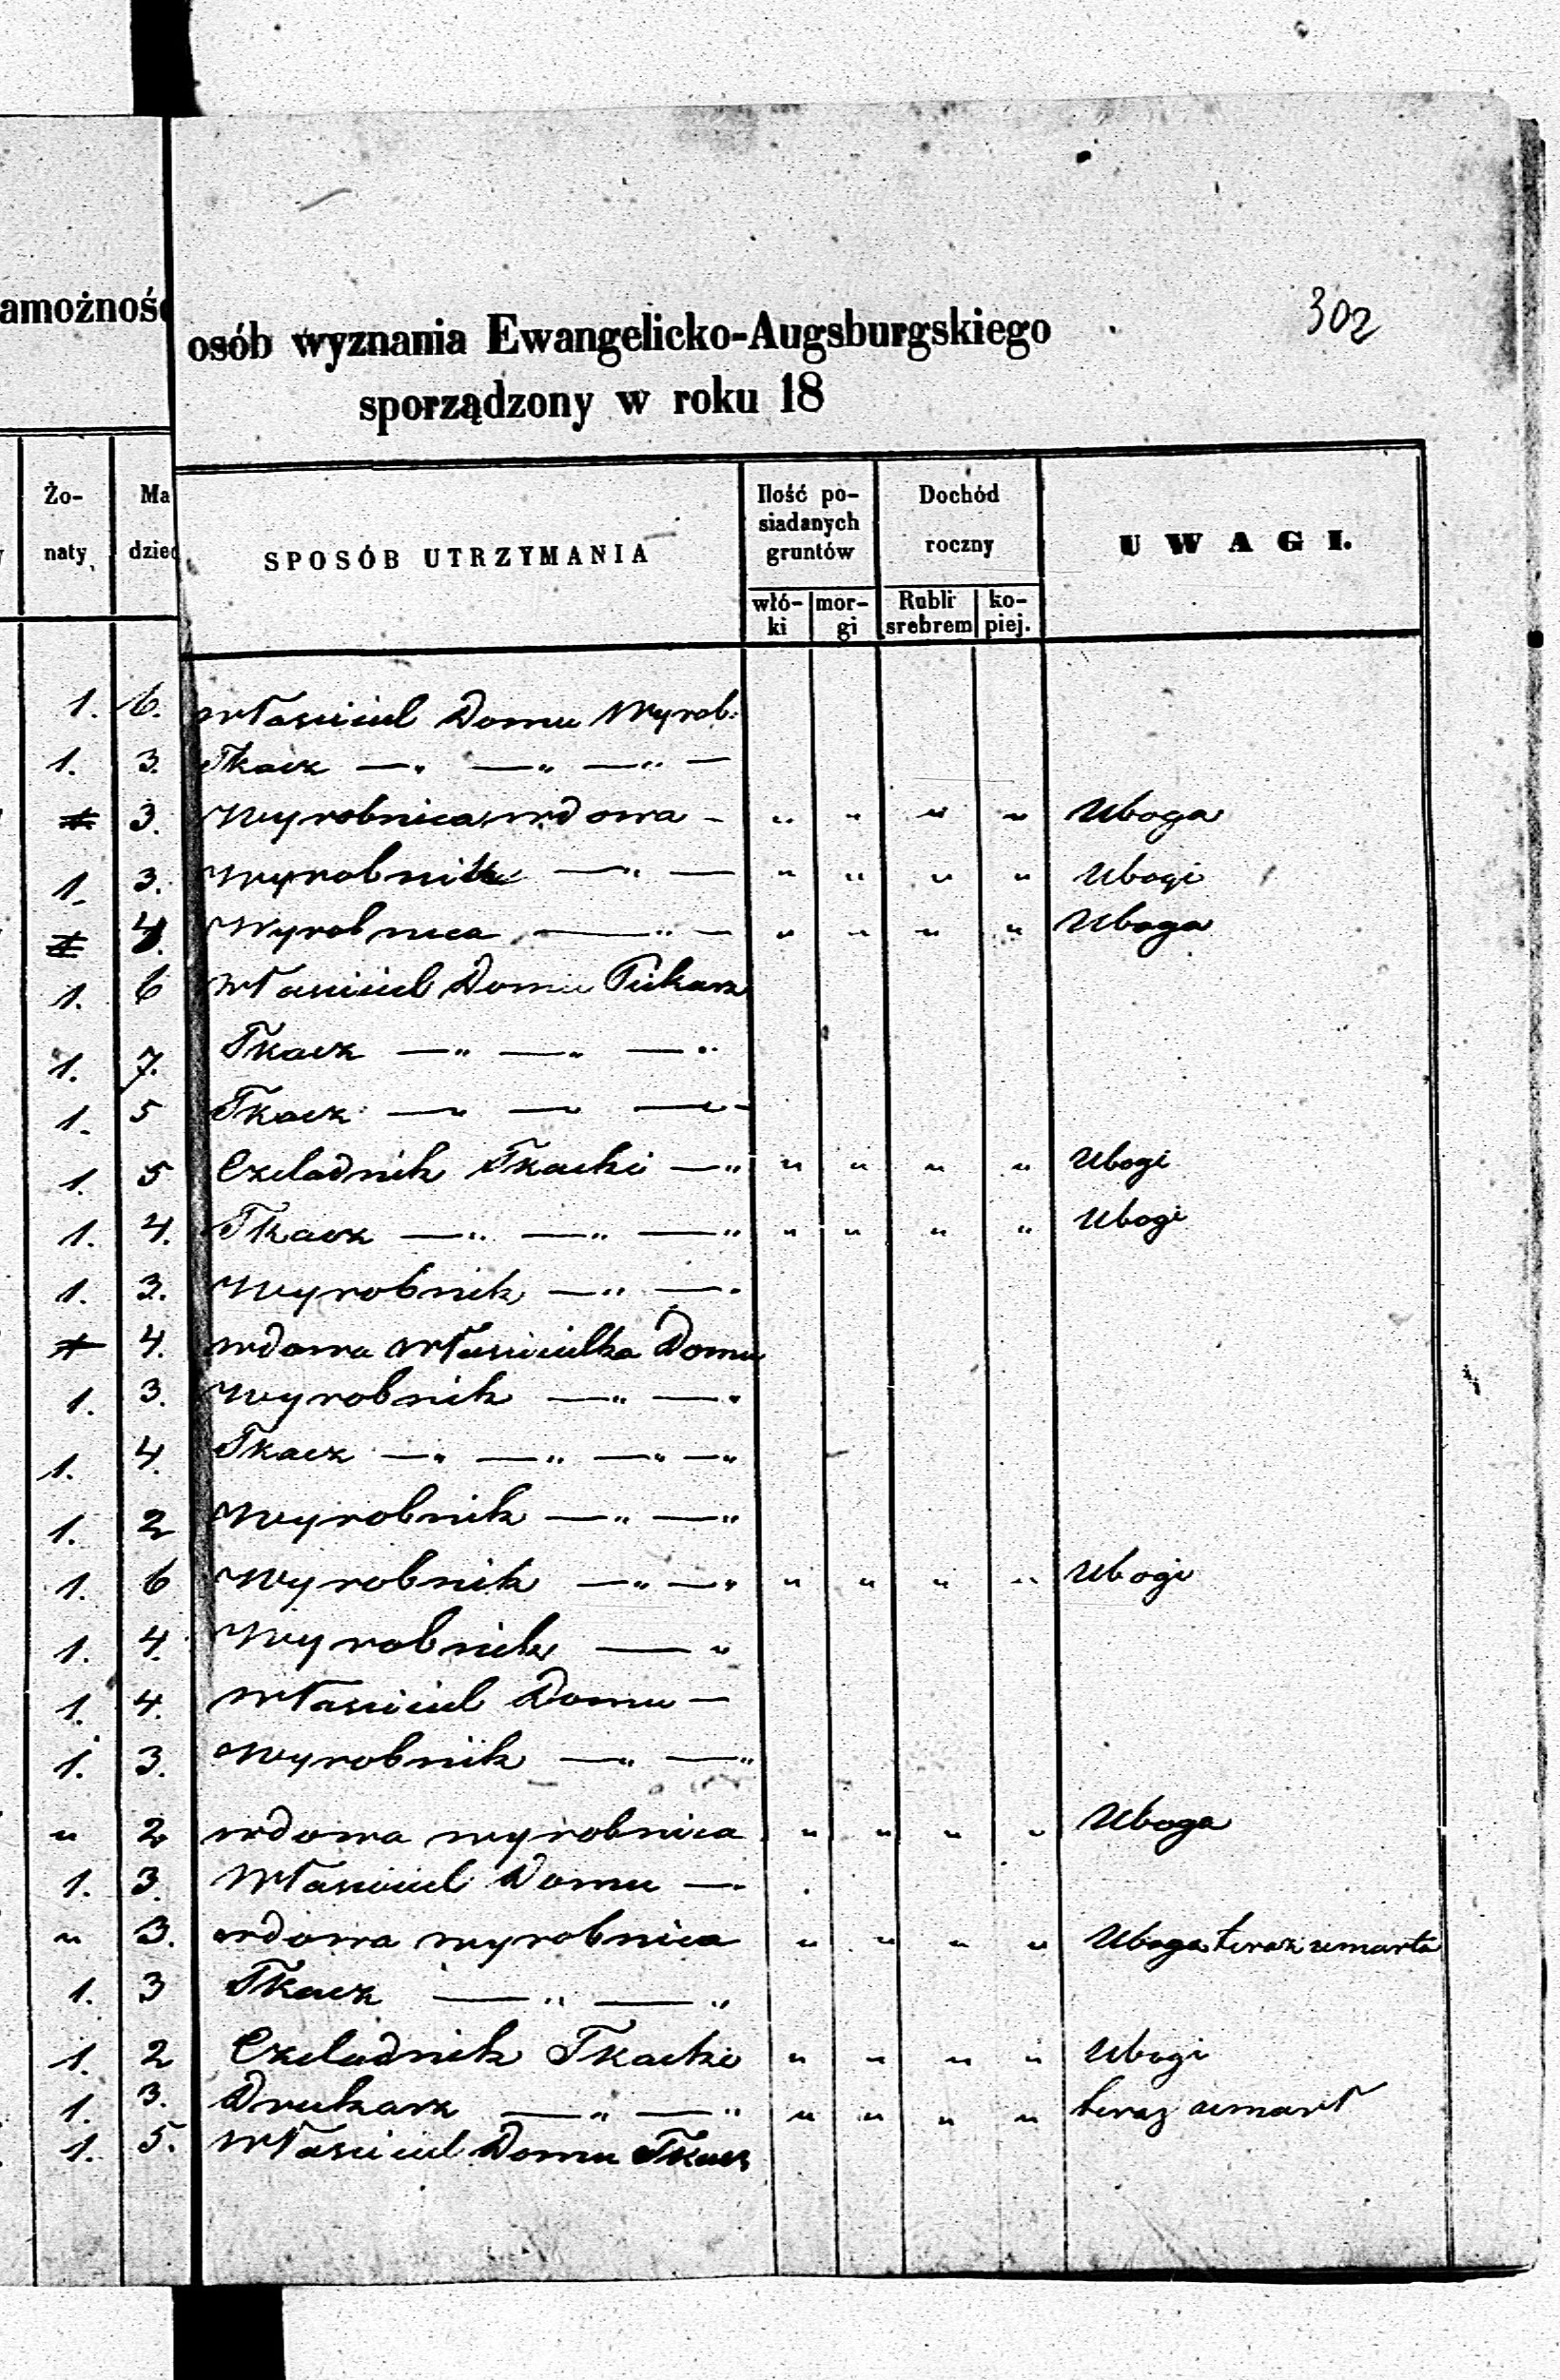 302
amożnoś
osób wyznania Ewangelicko-Augsburgskiego
sporządzony w roku 18
Żo-
naty
Ma
dziec
SPOSÓB UTRZYMANIA
Ilość po-
siadanych
gruntów
Dochód
roczny
UWAGI.
włó-
ki
mor-
gi
Rubli
srebrem
ko-
piej.
1. 6. Własciciel Domu Wyrob.
1. 3. Tkacz — „ — „ — „ —
3. Wyrobnica wdowa - „ „ „ „ Uboga
1. 3. Wyrobnik — „ — „ „ „ „ Ubogi
4. Wyrobnica — „ — „ „ „ „ Uboga
1. 6 Własciciel Domu Piekarz
1. 7. Tkacz — „ — „ — „
1. 5 Tkacz — „ — „ — „ -
1. 5 Czeladnik Tkacki — „ „ „ „ „ Ubogi
1. 4. Tkacz — „ — „ — „ „ „ „ „ Ubogi
1. 3. Wyrobnik — „ — „
4. wdowa Włascicielka Domu
1. 3. Wyrobnik — „ — „
1. 4. Tkacz — „ — „ — „ — „
1. 2 Wyrobnik — „ — „
1. 6 Wyrobnik — „ — „ „ „ „ „ Ubogi
1. 4. Wyrobnik — „
1. 4. Własciciel Domu —
1. 3. Wyrobnik — „ — „
„ 2 wdowa wyrobnica „ „ „ „ Uboga
1. 3. Własciciel Domu —
„ 3. wdowa wyrobnica „ „ „ „ Uboga teraz umarła
1. 3 Tkacz — „ — „
1. 2 Czeladnik Tkacki „ „ „ „ Ubogi
1. 3. Drukarz — „ — „ „ „ „ „ teraz umarł
1. 5. Własciciel Domu Tkacz